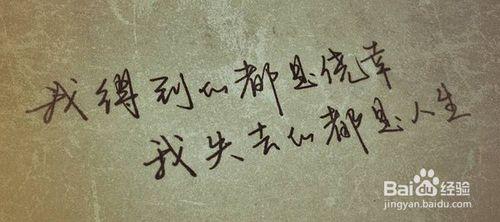 我得到的都是侥幸
我失去的都是人生
Baidu 经验
jingyan.baidu.com